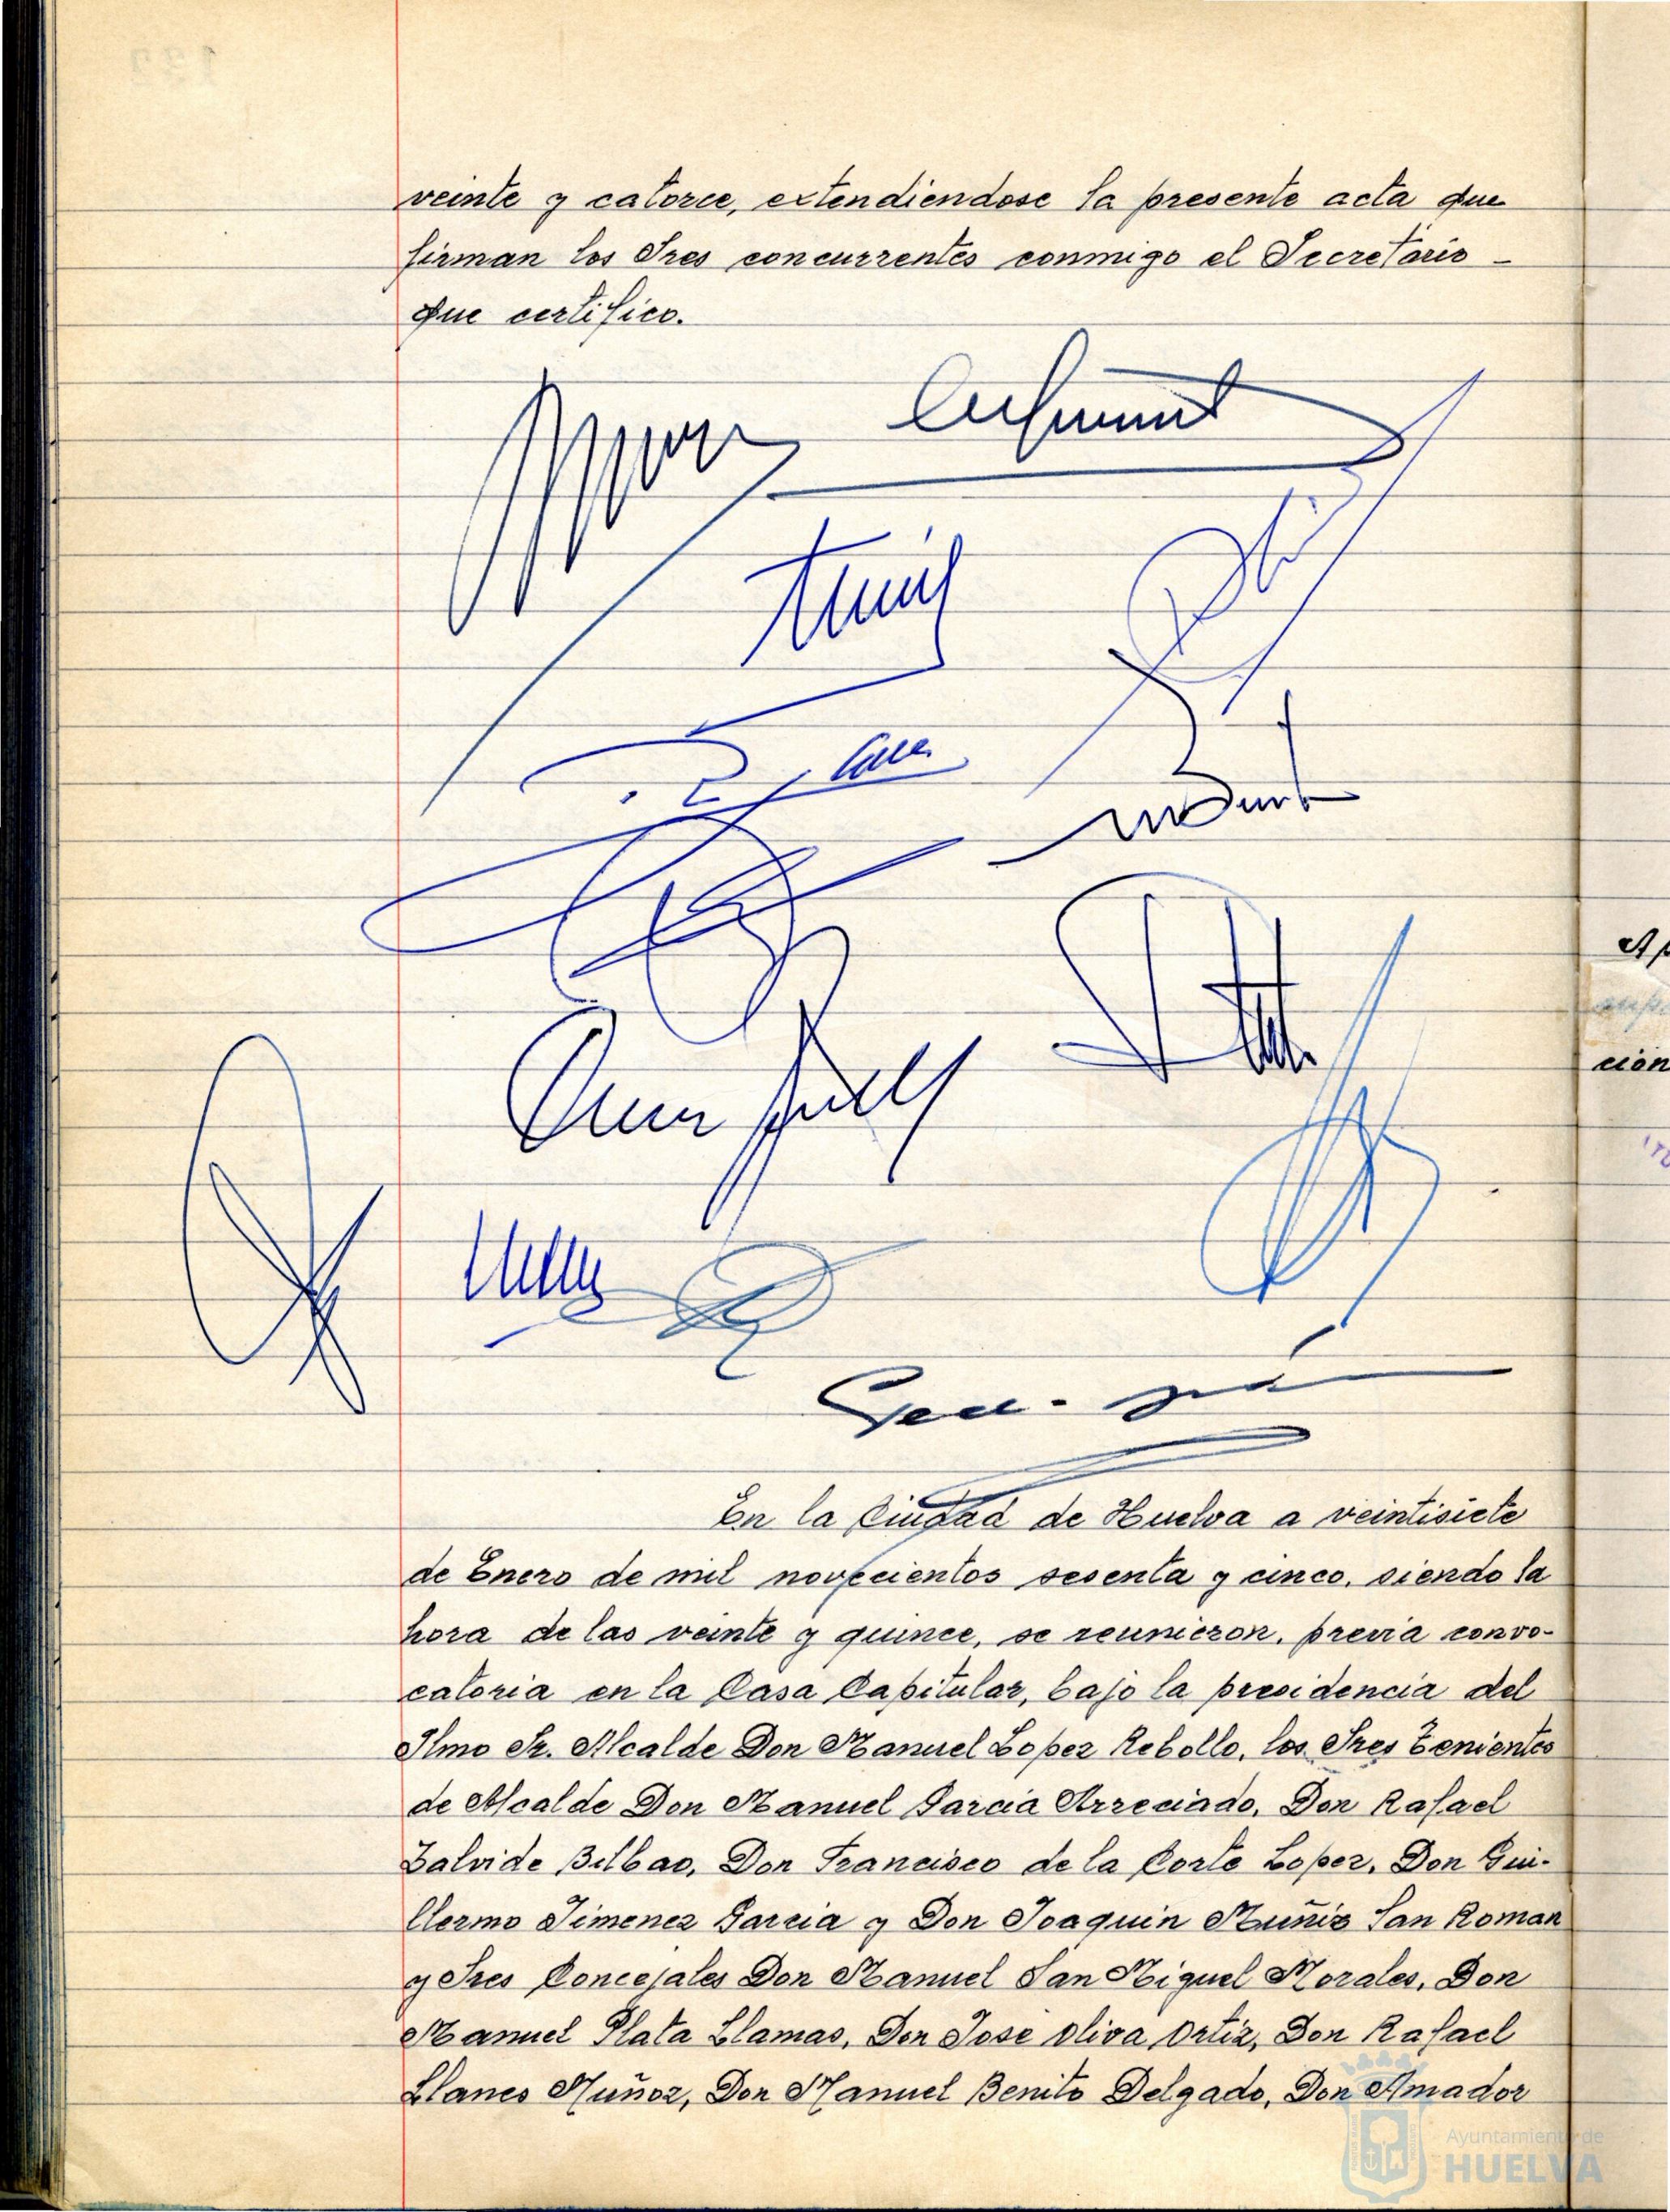 veinte y catorce, extendiendose la presente acta que
firman los Sres concurrentes conmigo el Secretario –
que certifico.
En la Ciudad de Huelva a veintisiete
de Enero de mil novecientos sesenta y cinco. siendo la
hora de las veinte y quince, se reunieron, previa convo-
catoria en la Casa Capitular, bajo la presidencia del
Ilmo Sr. Alcalde Don Manuel Lopez Rebollo, los Sres Tenientes
de Alcalde Don Manuel Garcia Arreciado, Don Rafael
Zalvide Bilbao, Don Francisco de la Corte Lopez, Don Gui-
llermo Jimenez Garcia y Don Joaquin Muñiz San Roman
y Sres Concejales Don Manuel San Miguel Morales, Don
Manuel Plata Llamas, Don Jose Oliva Ortiz, Don Rafael
Llanes Muñoz, Don Manuel Benito Delgado, Don Amador
cion
Ayuntamiento de
HUELVA